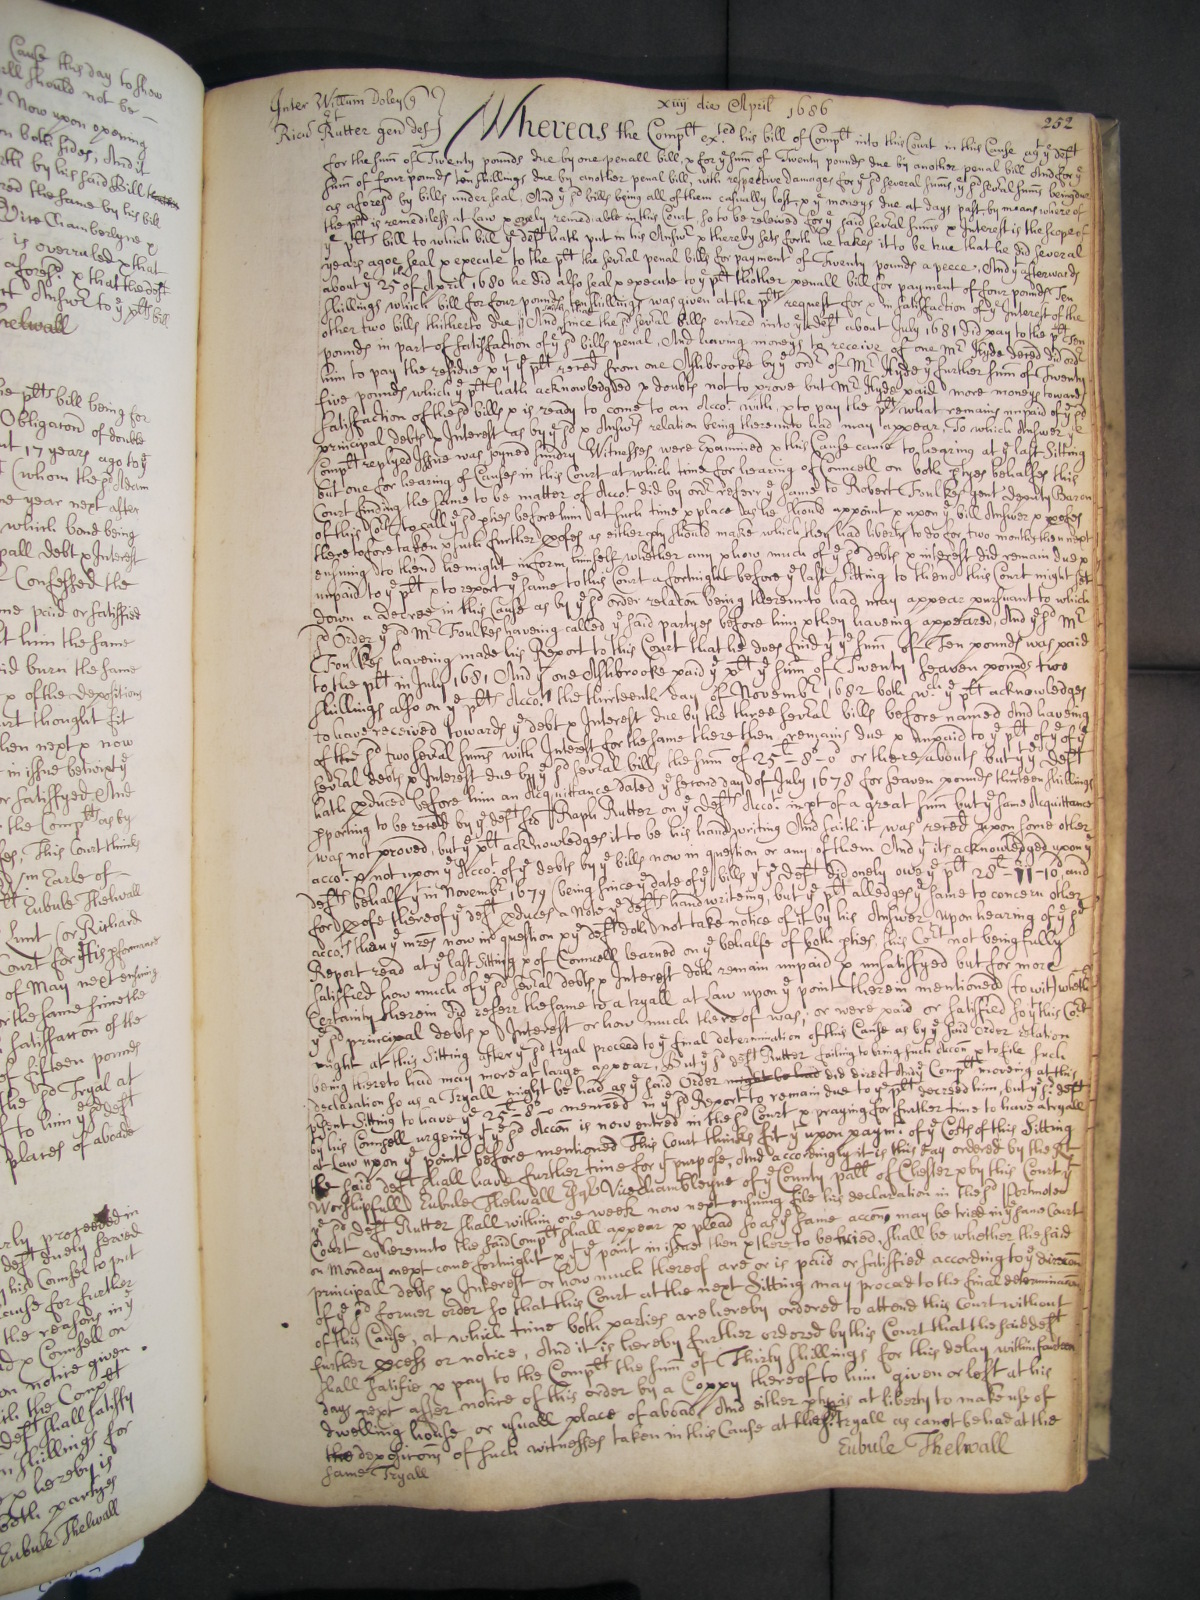 Cause this day to shew
all should not be
Now upon opening
on both sides, And it
by his said Bill
the same by his bill
Vice Chamberlyne x
is overruled x that
aforesd x that the deft
Answr to ye plts bill
Thelwall
plts bill being for
Obligacon of double
17 years ago to ye
(whom the sd Adam
one year next after
which bond being
debt x Interest
Confessed the
paid or satisfied
him the same
did burn the same
x of the deposicions
thought fit
then next x now
in issue betwixt ye
or satisfyed And
the Complt as by
This Court thinks
Eubule Thelwall
or Richard
Court for his pformance
of May next ensuing
or the same from the
satisfaction of the
of fifteen pounds
the sd Tryal at
to him ye sd deft
places of aboade
proceeded in
deft duely served
his Counsel to put
cause for further
the reasons in ye
x Counsell on
on notice given
the Complt
deft shall satisfy
shillings for
x hereby is
both partyes
Eubule Thelwall
Inter Willum Doley
et
Ricum Rutter gen def
xiiij die April 1686
252
Whereas the Complt ex:ed his bill of Complt into this Court in this Cause agt ye deft
for the sum of Twenty pounds due by one penall bill, x for ye sum of Twenty pounds due by another penal bill And for ye
sum of four pounds ten shillings due by another penal bill, with respective damages for ye sd several sums, ye sd several sums being due
as aforesd by bills under seal, And ye sd bills being all of them casually lost, x ye moneys due at days past, by means where of
the plt is remediless at Law x onely remediable in this Court, so to be releived for ye said several sums x Interest is the scope of
ye plts bill to which bill ye deft hath put in his Answr x thereby sets forth he takes it to be true that he did several
years agoe seal x execute to the plt the several penal bills for payment of Twenty pounds a peece, And yt afterwards
about ye 25th of April 1680 he did also seal x execute to ye plt thother penall bill for payment of four pounds Ten
shillings which bill for four pounds ten shillings was given at the plts request for x in satisfaction of ye Interest of the
other two bills thitherto due And since the sd several bills entred into ye deft about July 1681 did pay to the plt Ten
pounds in part of satisfaction of ye sd bills penal, And having moneys to receive of one Mr Hyde dered did ordr
him to pay the residue x yt ye plt rered from one Ashbrooke by ye ordr of Mr Hyde ye further sum of Twenty
five pounds which ye plt hath acknowledged x doubts not to prove but Mr Hyde paid more moneys towards
satisfaction of the sd bills x is ready to come to an Accot with x to pay the plt what remains unpaid of ye sd
principal Debts x Interest as by ye sd Answr relation being thereunto had may appear, To which Answer ye
Complt replyed Issue was joyned sundry Witnesses were examined x this Cause came to hearing at ye last Sitting
but one for hearing of Causes in this Court at which time for hearing of Councell on both ptyes behalfes this
Court finding the same to be matter of Accot did by ordr referr ye same to Robert Foulkes gent deputy Baron
of this Cort to call ye sd pties before him at such time x place as he should appoint x upon ye bill Answer x profes
theretofore taken x such further profes as either pty should make which they had liberty to do for two months then next
ensuing to thend he might inform himself whether any x how much of ye sd debts x interest did remain due x
unpaid to ye plt x to report ye same to this Court a fortnight before ye last Sitting to thend this Court might set
down a decree in this Cause as by ye sd order relaton being thereunto had may appear pursuant to which
sd Order ye sd Mr Foulkes haveing called ye said partyes before him x they haveing appeared, And ye sd Mr
Foulkes haveing made his Report to this Court that he does find yt ye sum of Ten pounds was paid
to the plt in July 1681 And yt one Ashbrooke paid ye plt ye sum of Twenty seaven pounds two
shillings also on ye plts Accot the thirteenth day of Novembr 1682 both wch ye plt acknowledges
to have received towards ye debt x Interest due by the three several bills before named And haveing
of the sd two several sums with Interest for the same there then remains due x unpaid to ye plt of ye sd
several debts x Interest due by ye sd several bills the sum of 25l-8s-0d or thereabouts but yt ye deft
hath pduced before him an Acquittance dated ye second day of July 1678 for seaven pounds thirteen shillings
pporting to be rered by ye deft fro Raph Rutter on ye defts Accot in pt of a great sum but ye same Acquittance
was not proved, but ye plt acknowledges it to be his hand writing And saith it was rered upon some other
acco. x not upon ye Acco: of ye debts by ye bills now in question or any of them And yt its acknowledged upon ye
defts behalf yt in Novembr 1679 (being since ye date of ye bills) yt ye deft did onely owe ye plt 28l-11-10, and
for profe thereof ye deft pduces a Note of ye defts hand writeing, but ye plt alledges ye same to concern other
acco:ts then ye mres now in question x ye deft doth not take notice of it by his Answer, Upon hearing of ye sd
Report read at ye last Sitting x of Councell learned on ye behalfe of both pties, this Cort not being fully
satisfied how much of ye sd several debts x Interest doth remain unpaid x unsatisfyed but for more
Certainty therein did referr the same to a tryall at Law upon ye point therein mentioned (to wit) wheth
ye sd principal debts x Interest or how much thereof was, or were paid or satisfied so yt this Cort
might at this Sitting after ye sd tryal proceed to ye final determination of this Cause as by ye said order relation
being thereto had may more at large appear, But ye sd deft Rutter failing to bring such Accon x to file such
declaration so as a Tryall might be had as ye said Order might be had did direct And ye Complt moveing at this
psent Sitting to have ye 25l-8s-0 menconed in ye sd Report to remain due to ye plt decreed him, but ye sd deft
by his Counsell urgeing yt ye sd Accon is now entred in the sd Court x praying for further time to have a tryall
at Law upon ye point before mentioned This Court thinks fit yt upon paymt of ye Costs of this Sitting
the said deft shall have further time for yt purpose, And accordingly it is this day ordered by the Rt
Worshipfull Eubule Thelwall Esqr Vice Chambleyne of ye County pall of Chester x by this Court yt
ye sd deft Rutter shall within one week now next ensuing file his declaration in the sd Portmoten
Court whereunto the said Complt shall appear x plead so as ye same accon may be tried in ye same Court
on Monday next come fortnight x yt ye point in issue then x there to be tried, shall be whether the said
principall debts x Interest or how much thereof are or is paid or satisfied according to ye direcon
of ye sd former order so that this Court at the next Sitting may proceed to the final determinacon
of this Cause, at which time both parties are hereby ordered to attend this Court without
further pcess or notice, And it is hereby further ordered by this Court that the said deft
shall satisfie x pay to the Complt the sum of Thirty shillings for this delay within fourteen
days next after notice of this order by a Coppy thereof to him given or left at his
dwelling house or usuall place of aboad And either pty is at liberty to make use of
the deposicons of such witnesses taken in this Cause at the sd tryall as canot be had at the
same Tryall
Eubule Thelwall